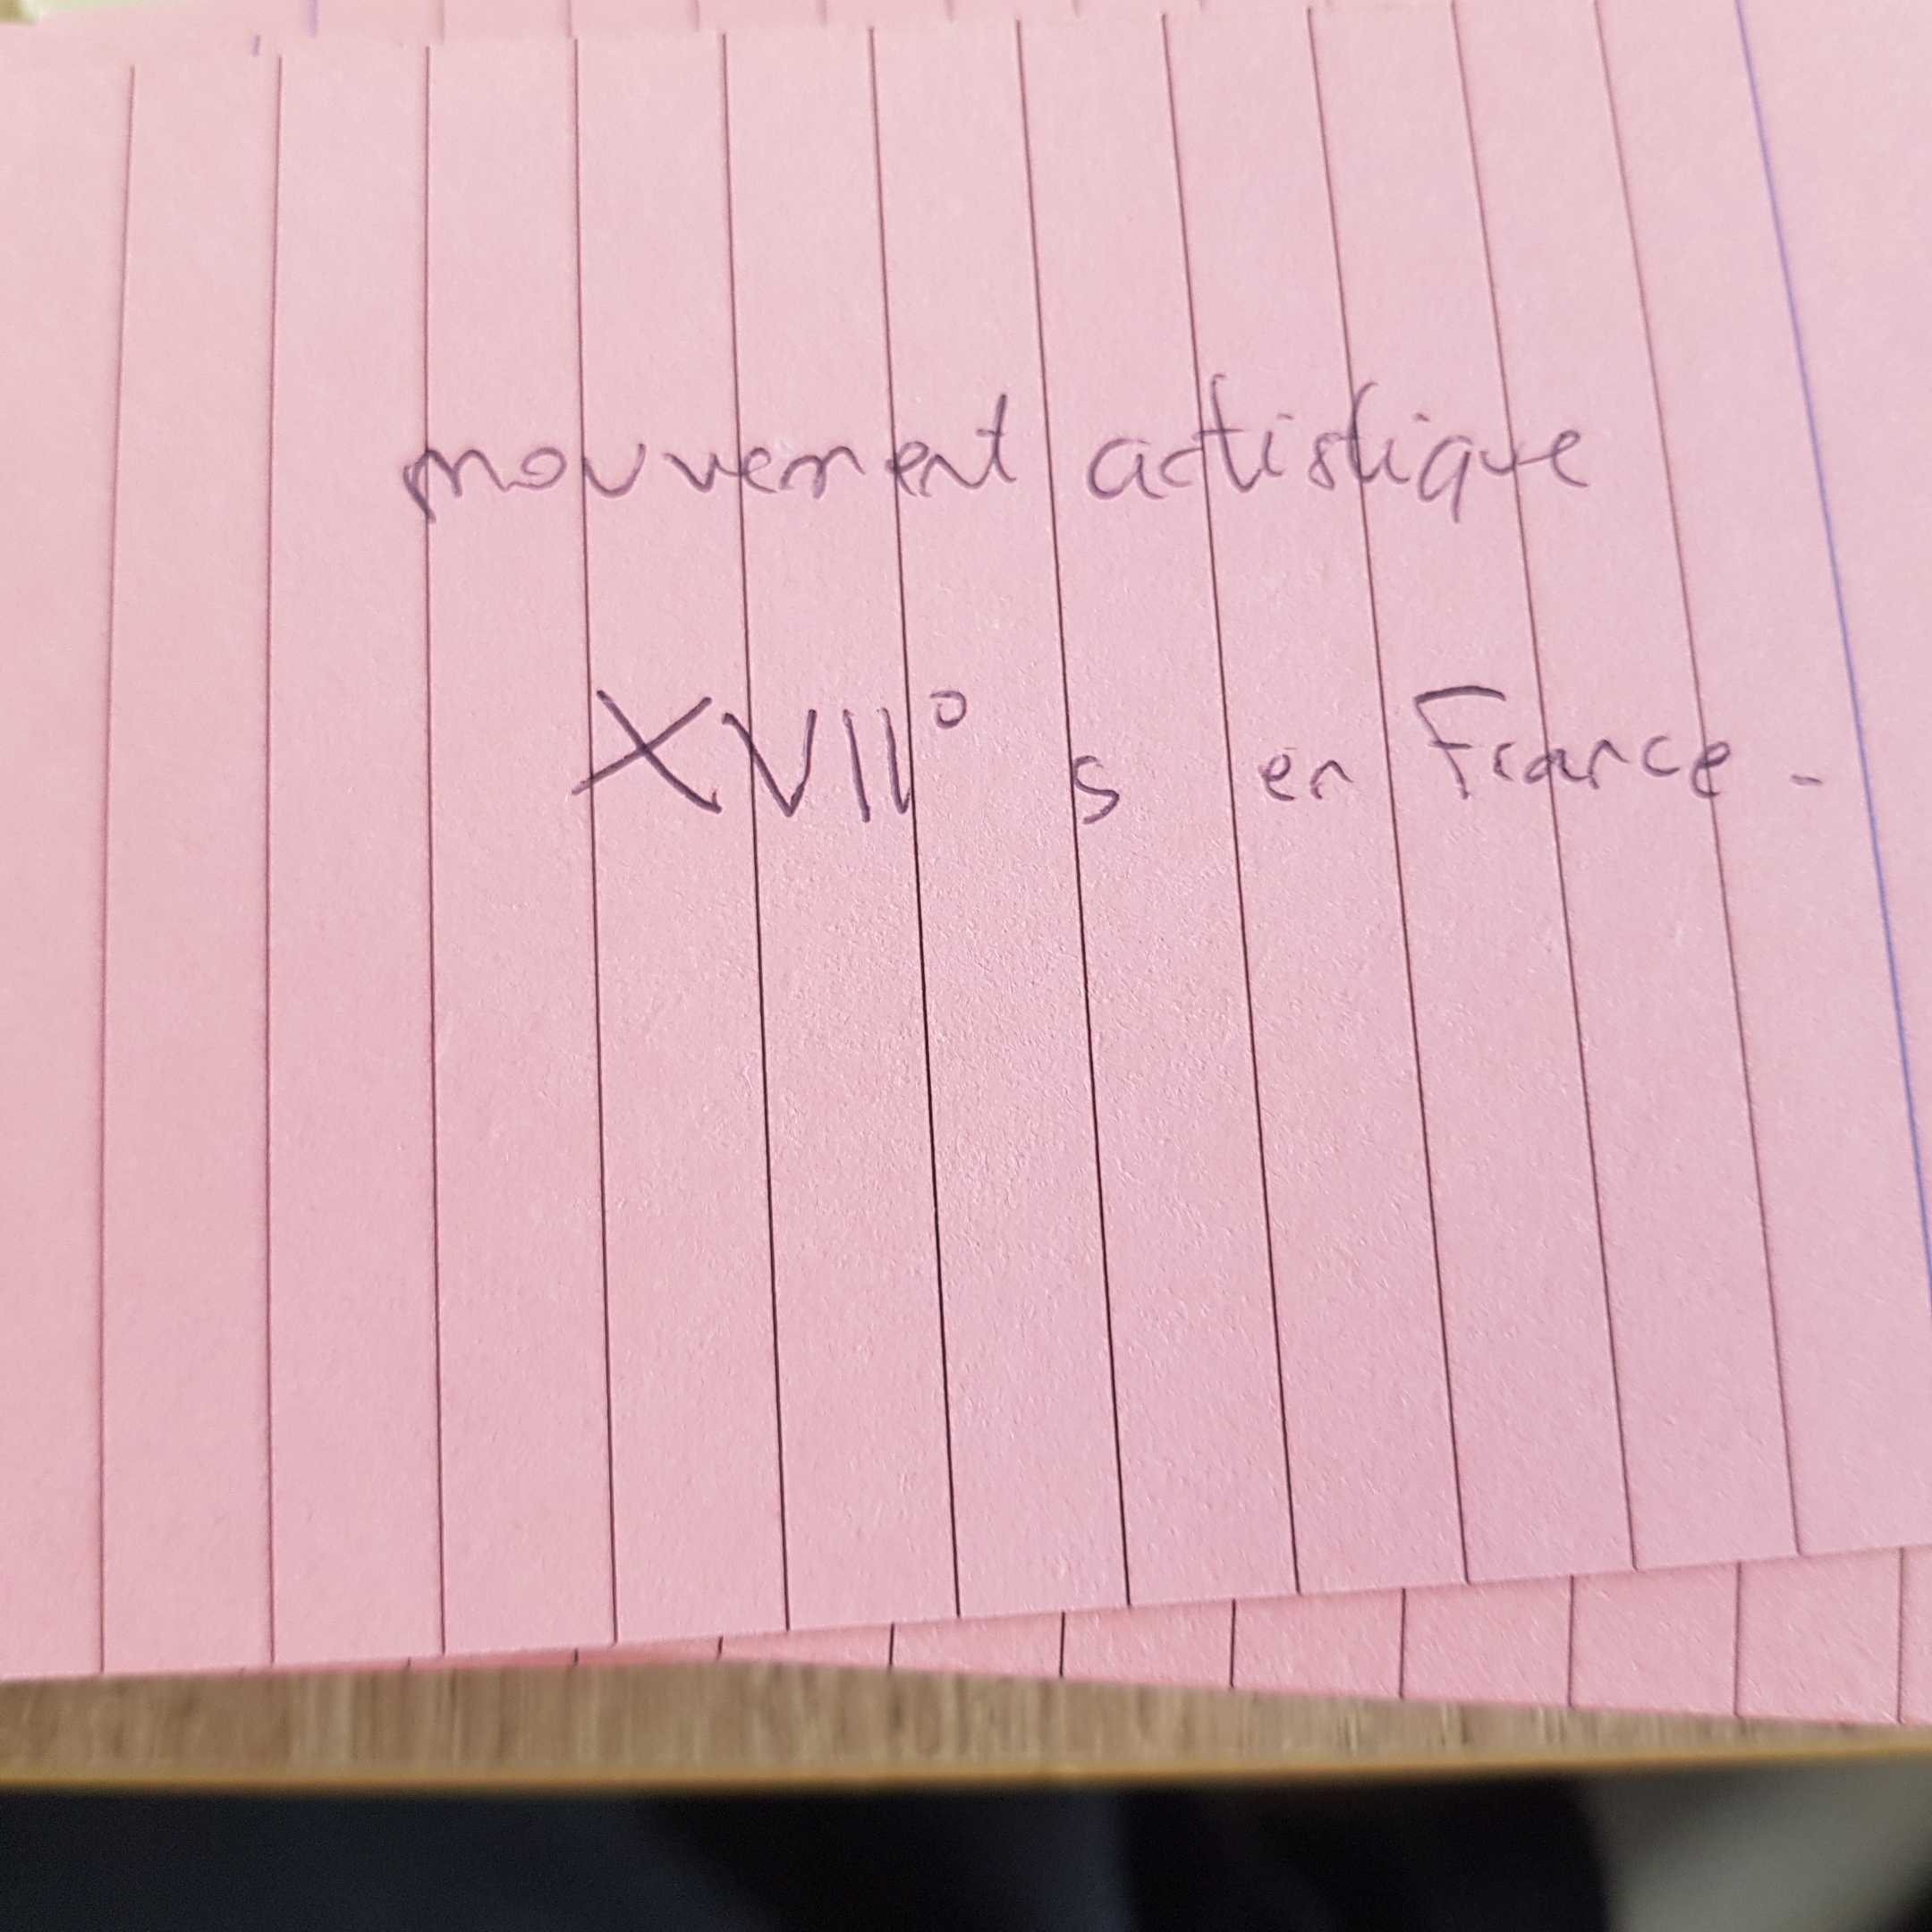 mouvement artistique
XVII° s en France.